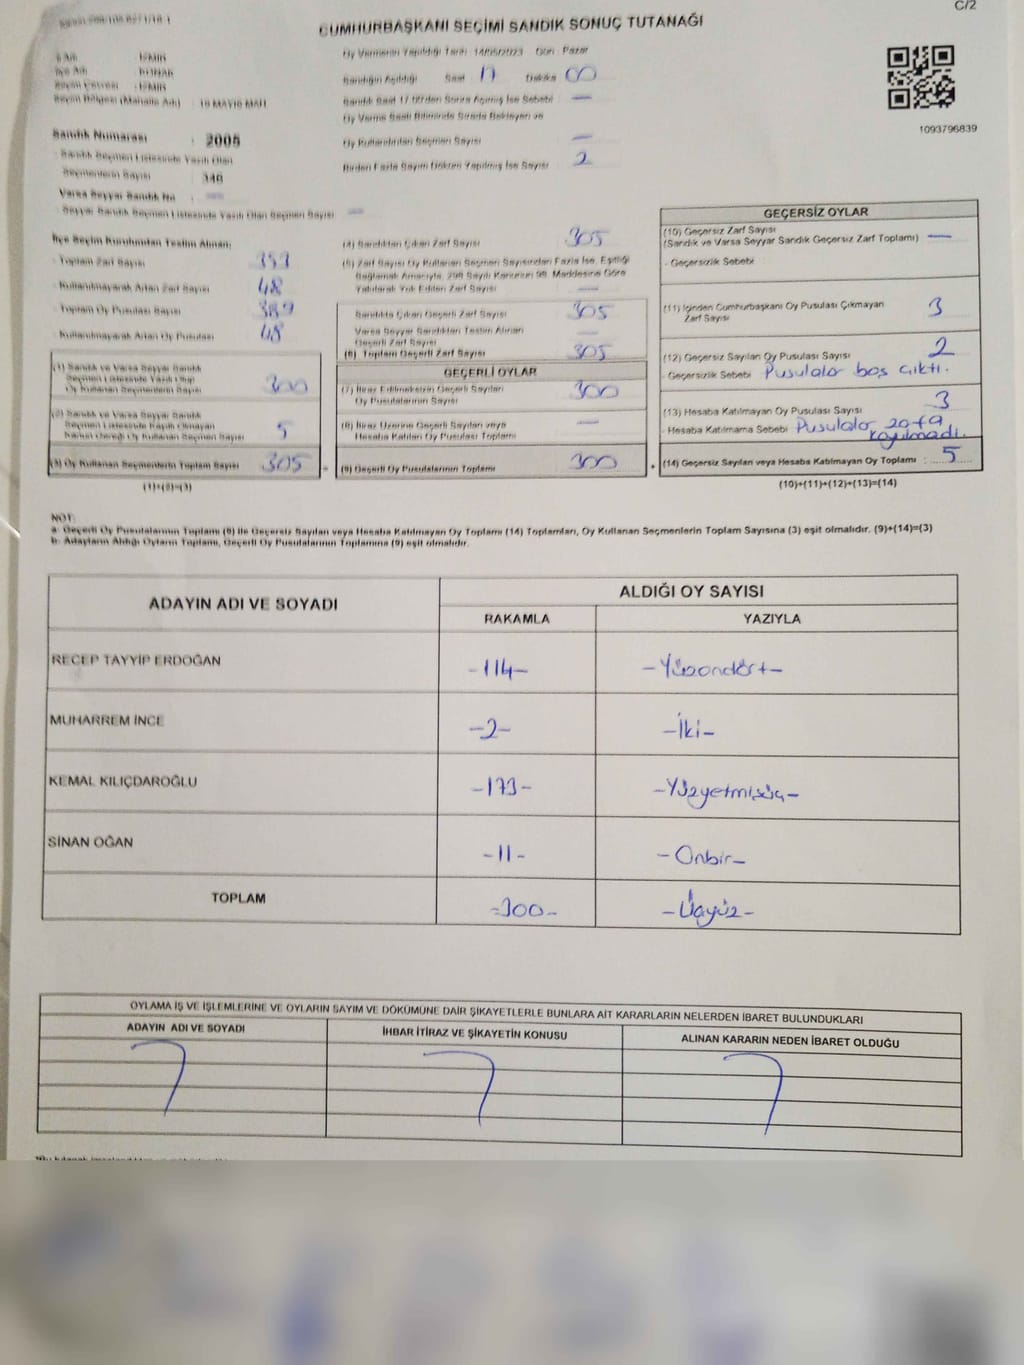 C/2
CUMHURBAŞKANI SEÇİMİ SANDIK SONUÇ TUTANAĞI
İli Adı : İZMİR
İlçe Adı
Seçim Çevresi : İZMİR
Seçim Bölgesi (Mahalle Adı) : 19 MAYIS MAH.
Sandık Numarası : 2005
Sandık Seçmen Listesinde Yazılı Olan
Seçmenlerin Sayısı
Varsa Seyyar Sandık No : —
Seyyar Sandık Seçmen Listesinde Yazılı Olan Seçmen Sayısı : —
Oy Vermenin Yapıldığı Tarih 14/05/2023 Gün Pazar
Sandığın Açıldığı Saat 17 Dakika 00
Sandık Saat 17.00'den Sonra Açılmış İse Sebebi : —
Oy Verme Saati Bitiminde Sırada Bekleyen ve
Oy Kullandırılan Seçmen Sayısı : —
Birden Fazla Sayım Döküm Yapılmış İse Sayısı : 2
1093796839
İlçe Seçim Kurulundan Teslim Alınan;
- Toplam Zarf Sayısı
- Kullanılmayarak Artan Zarf Sayısı : 48
- Toplam Oy Pusulası Sayısı
- Kullanılmayarak Artan Oy Pusulası : 48
(1) Sandık ve Varsa Seyyar Sandık
Seçmen Listesinde Yazılı Olup
Oy Kullanan Seçmenlerin Sayısı : 300
(2) Sandık ve Varsa Seyyar Sandık
Seçmen Listesinde Kaydı Olmayan
Kanun Gereği Oy Kullanan Seçmen Sayısı : 5
(3) Oy Kullanan Seçmenlerin Toplam Sayısı : 305
(1)+(2)=(3)
(4) Sandıktan Çıkan Zarf Sayısı : 305
(5) Zarf Sayısı Oy Kullanan Seçmen Sayısından Fazla İse, Eşitliği
Sağlamak Amacıyla, 298 Sayılı Kanunun 98. Maddesine Göre
Yakılarak Yok Edilen Zarf Sayısı : —
Sandıkta Çıkan Geçerli Zarf Sayısı : 305
Varsa Seyyar Sandıktan Teslim Alınan
Geçerli Zarf Sayısı : —
(6) Toplam Geçerli Zarf Sayısı : 305
GEÇERLİ OYLAR
(7) İtiraz Edilmeksizin Geçerli Sayılan
Oy Pusulalarının Sayısı : 300
(8) İtiraz Üzerine Geçerli Sayılan veya
Hesaba Katılan Oy Pusulası Toplamı : —
(9) Geçerli Oy Pusulalarının Toplamı : 300
GEÇERSİZ OYLAR
(10) Geçersiz Zarf Sayısı
(Sandık ve Varsa Seyyar Sandık Geçersiz Zarf Toplamı) : —
- Geçersizlik Sebebi
(11) İçinden Cumhurbaşkanı Oy Pusulası Çıkmayan
Zarf Sayısı : 3
(12) Geçersiz Sayılan Oy Pusulası Sayısı : 2
- Geçersizlik Sebebi : Pusulalar boş çıktı.
(13) Hesaba Katılmayan Oy Pusulası Sayısı : 3
- Hesaba Katılmama Sebebi Pusulalar zarfa
koyulmadı.
(14) Geçersiz Sayılan veya Hesaba Katılmayan Oy Toplamı : 5
(10)+(11)+(12)+(13)=(14)
NOT:
a- Geçerli Oy Pusulalarının Toplamı (9) ile Geçersiz Sayılan veya Hesaba Katılmayan Oy Toplamı (14) Toplamları, Oy Kullanan Seçmenlerin Toplam Sayısına (3) eşit olmalıdır. (9)+(14)=(3)
b- Adayların Aldığı Oyların Toplamı, Geçerli Oy Pusulalarının Toplamına (9) eşit olmalıdır.
ADAYIN ADI VE SOYADI
ALDIĞI OY SAYISI
RAKAMLA YAZIYLA
RECEP TAYYİP ERDOĞAN -114- -Yüzondört-
MUHARREM İNCE -2- -İki-
KEMAL KILIÇDAROĞLU -173- -Yüzyetmişüç-
SİNAN OĞAN -11- -Onbir-
TOPLAM -300- -Üçyüz-
OYLAMA İŞ VE İŞLEMLERİNE VE OYLARIN SAYIM VE DÖKÜMÜNE DAİR ŞİKAYETLERLE BUNLARA AİT KARARLARIN NELERDEN İBARET BULUNDUKLARI
ADAYIN ADI VE SOYADI İHBAR İTİRAZ VE ŞİKAYETİN KONUSU ALINAN KARARIN NEDEN İBARET OLDUĞU